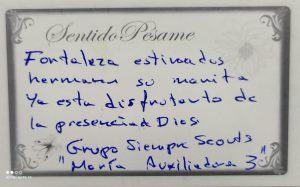 Sentido Pésame
Fortaleza estimados
hermanos su mamita
Ya esta disfrutando de
la presencia d Dios
Grupo Siempre Scouts
"María Auxiliadora 3"